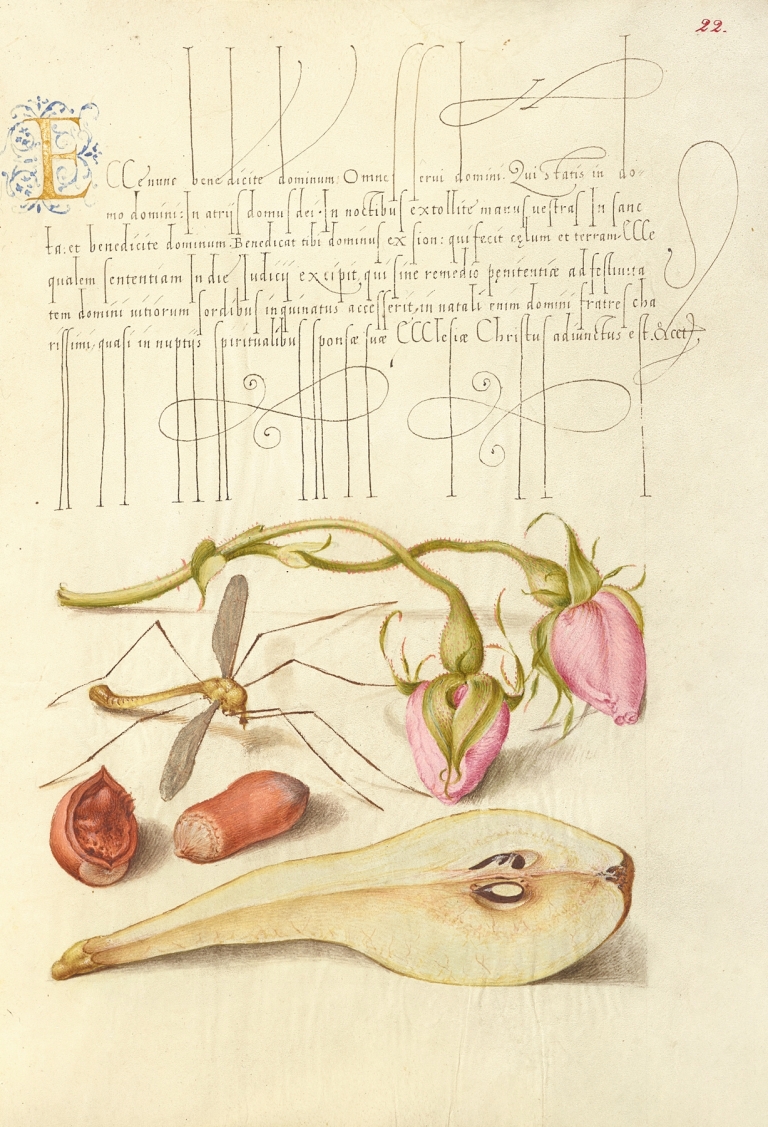 22.
ECCe nunc benedicite dominum: Omnes servi domini: Qui statis in do-
mo domini: In atrijs domus dei. In noctibus extollite manus uestras In sanc
ta: et benedicite dominum. Benedicat tibi dominus ex sion: qui fecit cęlum et terram. CCCe
qualem sententiam In die Iudicij excipit, qui sine remedio penitentiæ ad festiuita
tem domini uitiorum sordibus inquinatus accesserit, in natali enim domini fratres cha
rissimi, quasi in nuptijs spiritualibus sponsæ suæ CCCLesiæ Christus adiunctus est. &cet,